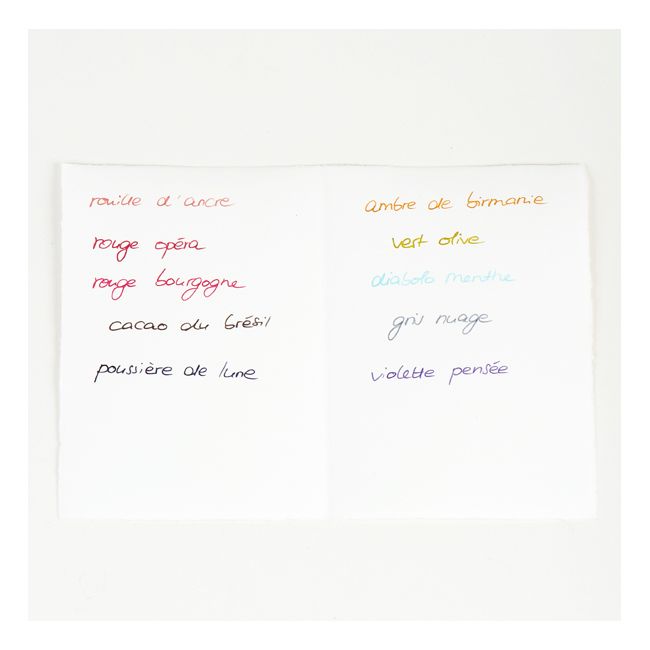 rouille d'ancre
rouge opéra
rouge bourgogne
cacao du brésil
poussière de lune
ambre de birmanie
vert olive
diabolo menthe
gris nuage
violette pensée